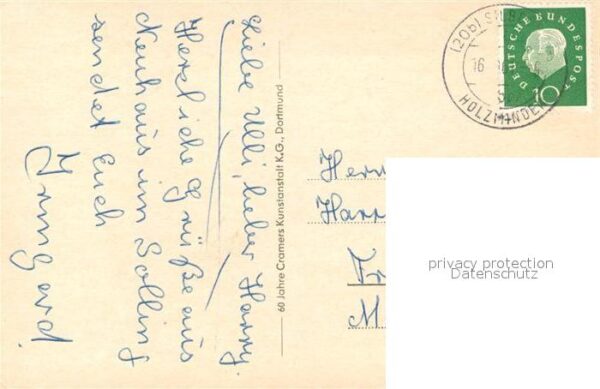 Liebe Ulli, lieber Harry.
Herzliche Grüße aus
Neuhaus im Solling
sendet Euch
Irmgard
60 Jahre Cramers Kunstanstalt K.G., Dortmund
(20b)
16
HOLZMINDEN
DEUTSCHE BUNDESPOST
10
Herr
Harr
M
privacy protection
Datenschutz